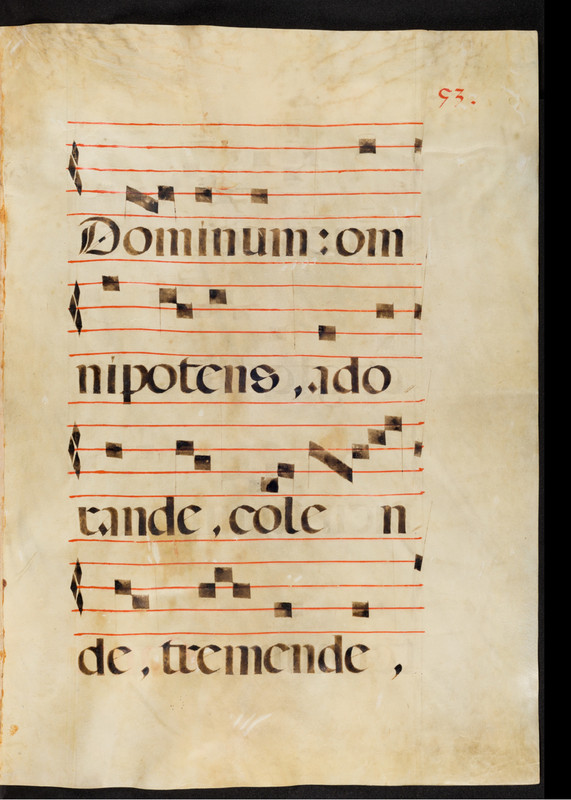 93.
Dominum : om
nipotens , ado
rande , cole n
de , tremende ,